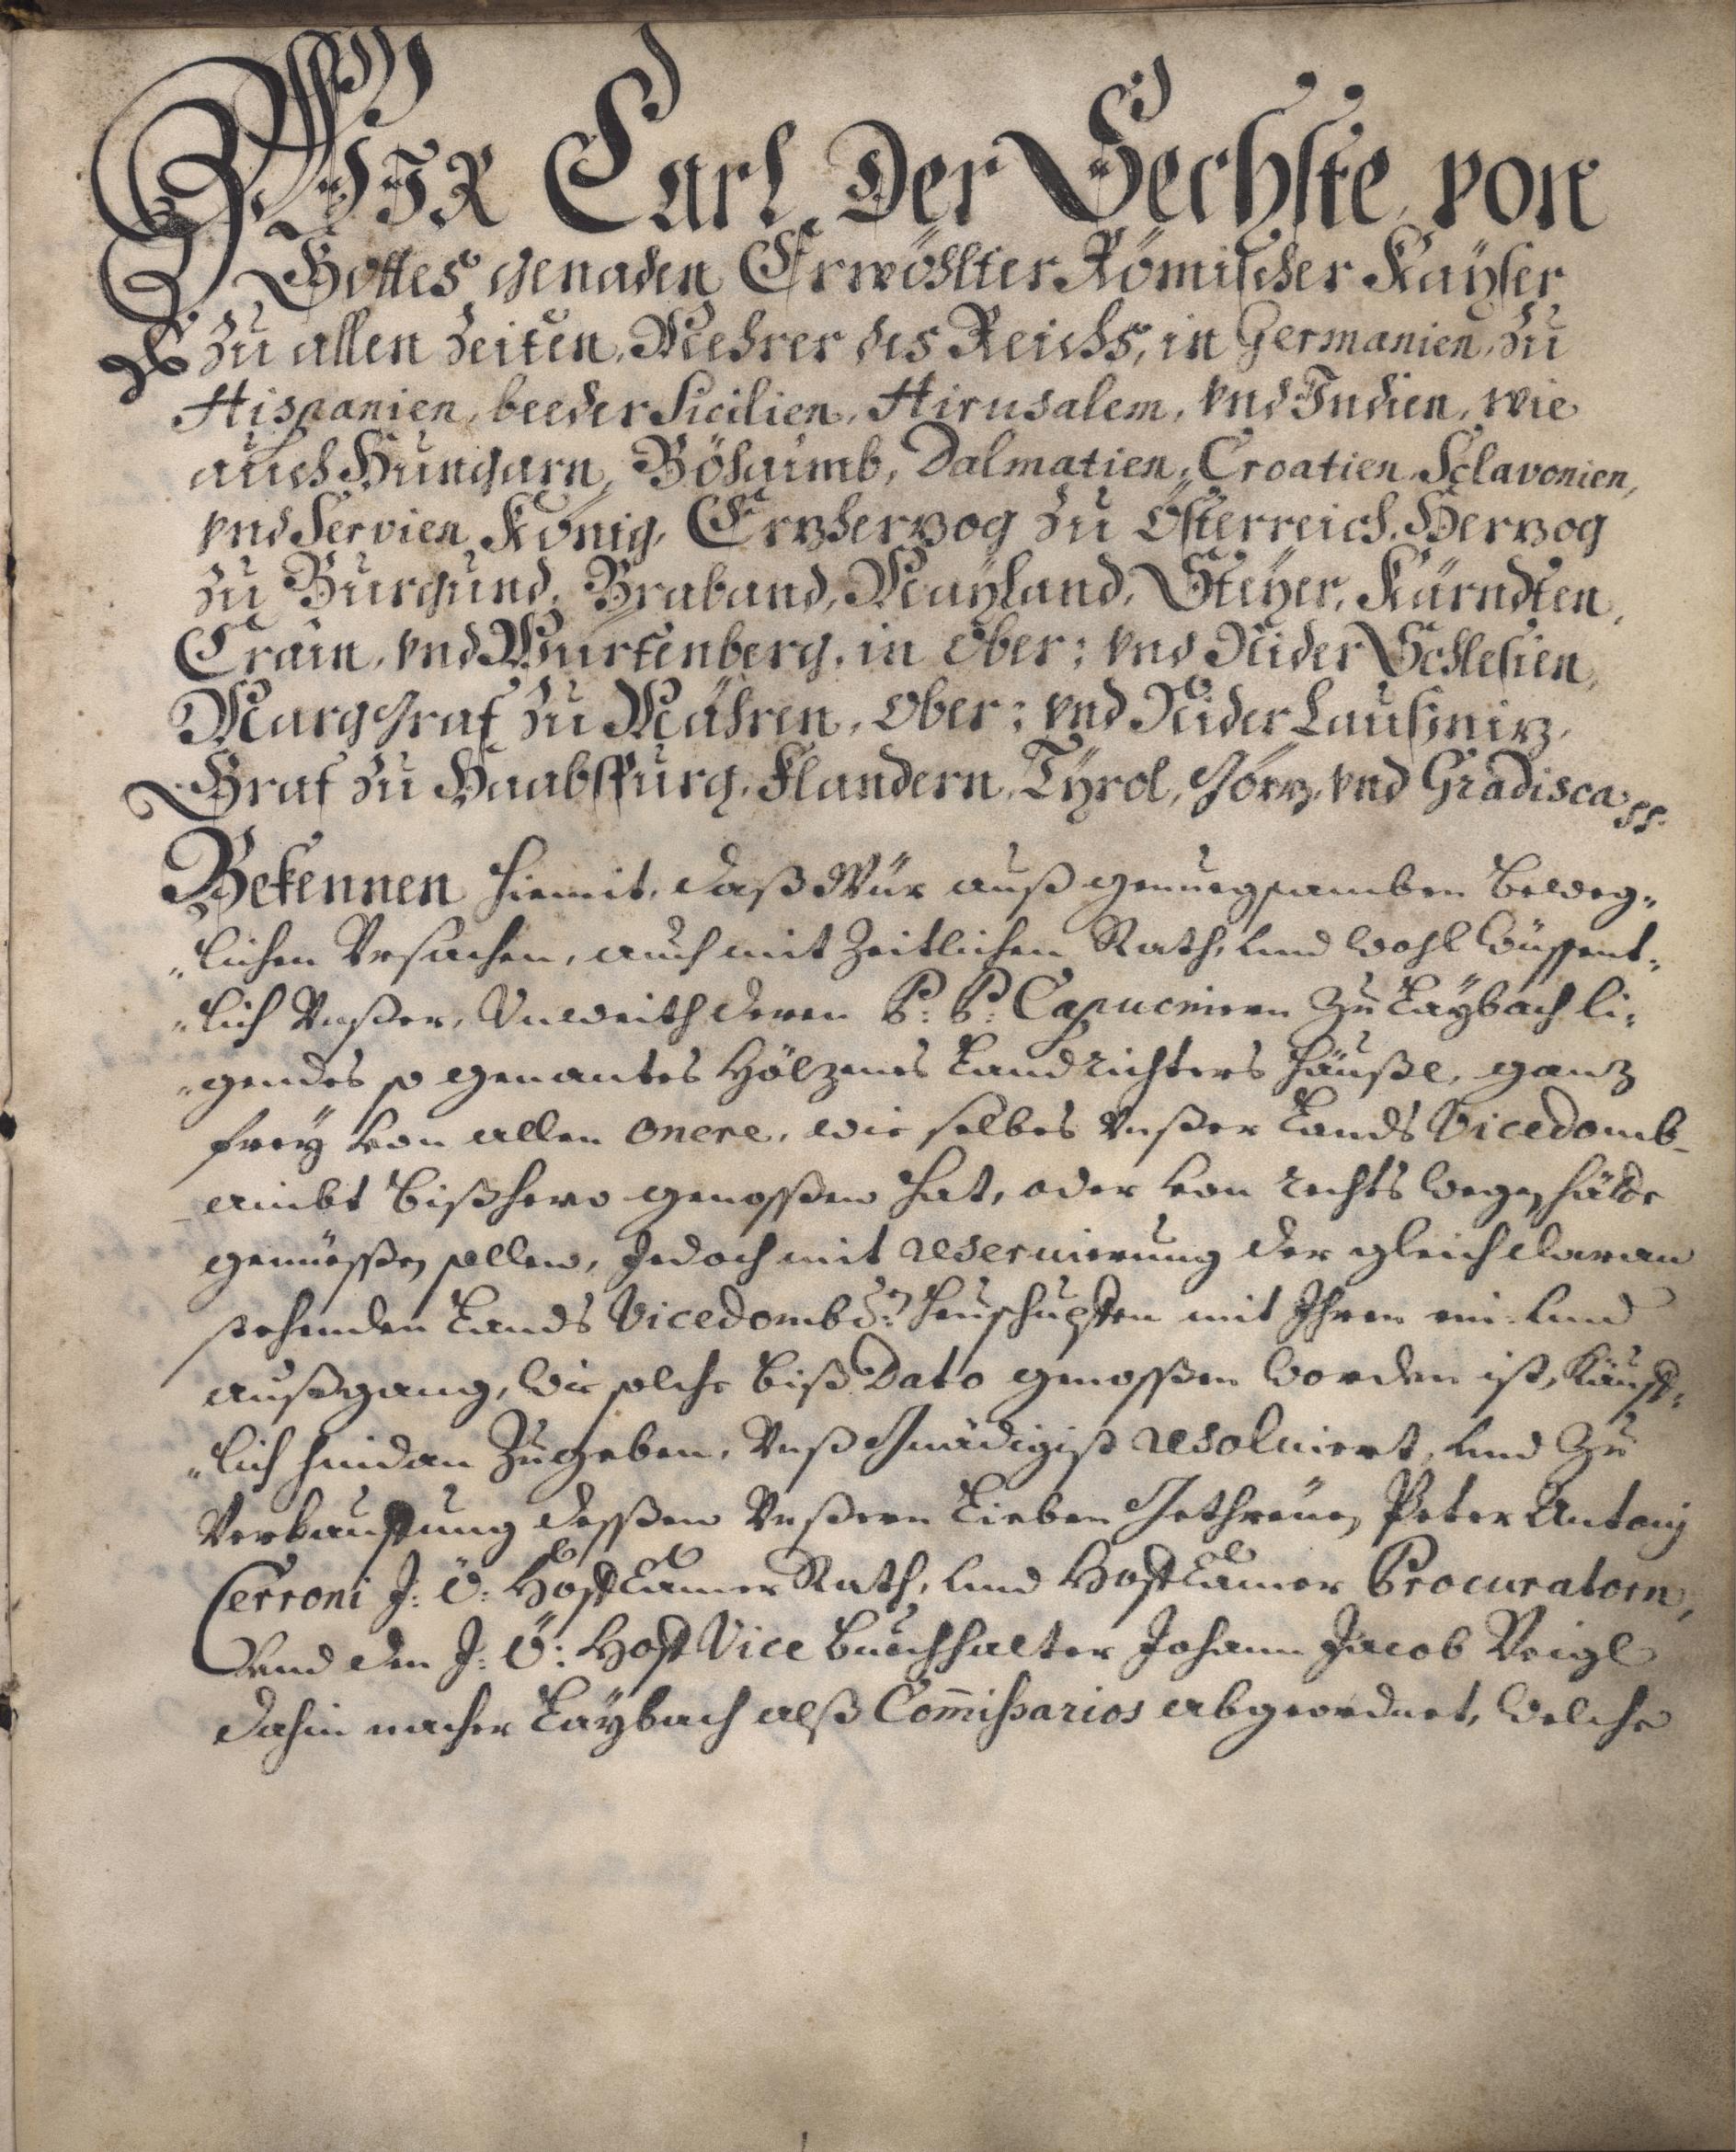 WIR Carl Der Sechste, von
Gottes genaden Erwöhlter Römischer Kayser
Zu allen Zeiten, Mehrer des Reichs, in Germanien, Zu
Hispanien, beeder Sicilien, Hirusalem, vnd Indien, wie
auch Hungarn, Böhaimb, Dalmatien, Croatien, Sclavonien,
vnd Servien König, Erzherzog Zu Österreich, Herzog
Zu Burgund, Braband, Mayland, Steyer, Kärndten,
Crain, vnd Würtenberg, in Ober: vnd Nider Schlesien,
Marggraf Zu Mähren, Ober: vnd Nider Laußnitz,
Graf Zu Haabsspurg, Flandern, Tyrol, Görz, vnd Gradisca
Bekennen hiemit, daß Wür auß genuegsamben beweg„
„lichen Vrsachen, auch mit Zeitlichen Rath, vnd wohl wüssent„
„lich Vnßer, Vnweith deren P: P: Capucinern Zu Laybach li„
„gendes so genantes Hölzenes Landrichters häußl, ganz
frey von allen onere, wie selbes Vnßer Lands Vicedomb-
ambt bißhero genossen hat, oder von rechts wegen hätte
genüessen sollen, Jedoch mit reseruierung der gleich daran
stehenden Lands Vicedomb: heuschupfen mit Ihren ein: vnd
außgang, wie solche biß Dato genossen worden ist, Käuff„
„lich hindan Zugeben, Vnß Gnädigist resoluiert, vnd Zu
Verkauffung dessen Vnßern Lieben Gethreüen Peter Antonj
Cerroni J: Ö: Hoff Camer Rath, vnd Hoff Camer Procuratorn,
Vnd den J: Ö: Hoff Vice Buechhalter Johann Jacob Veigl
dahin nacher Laybach alß Com̄ißarios abgeordnet, Welche